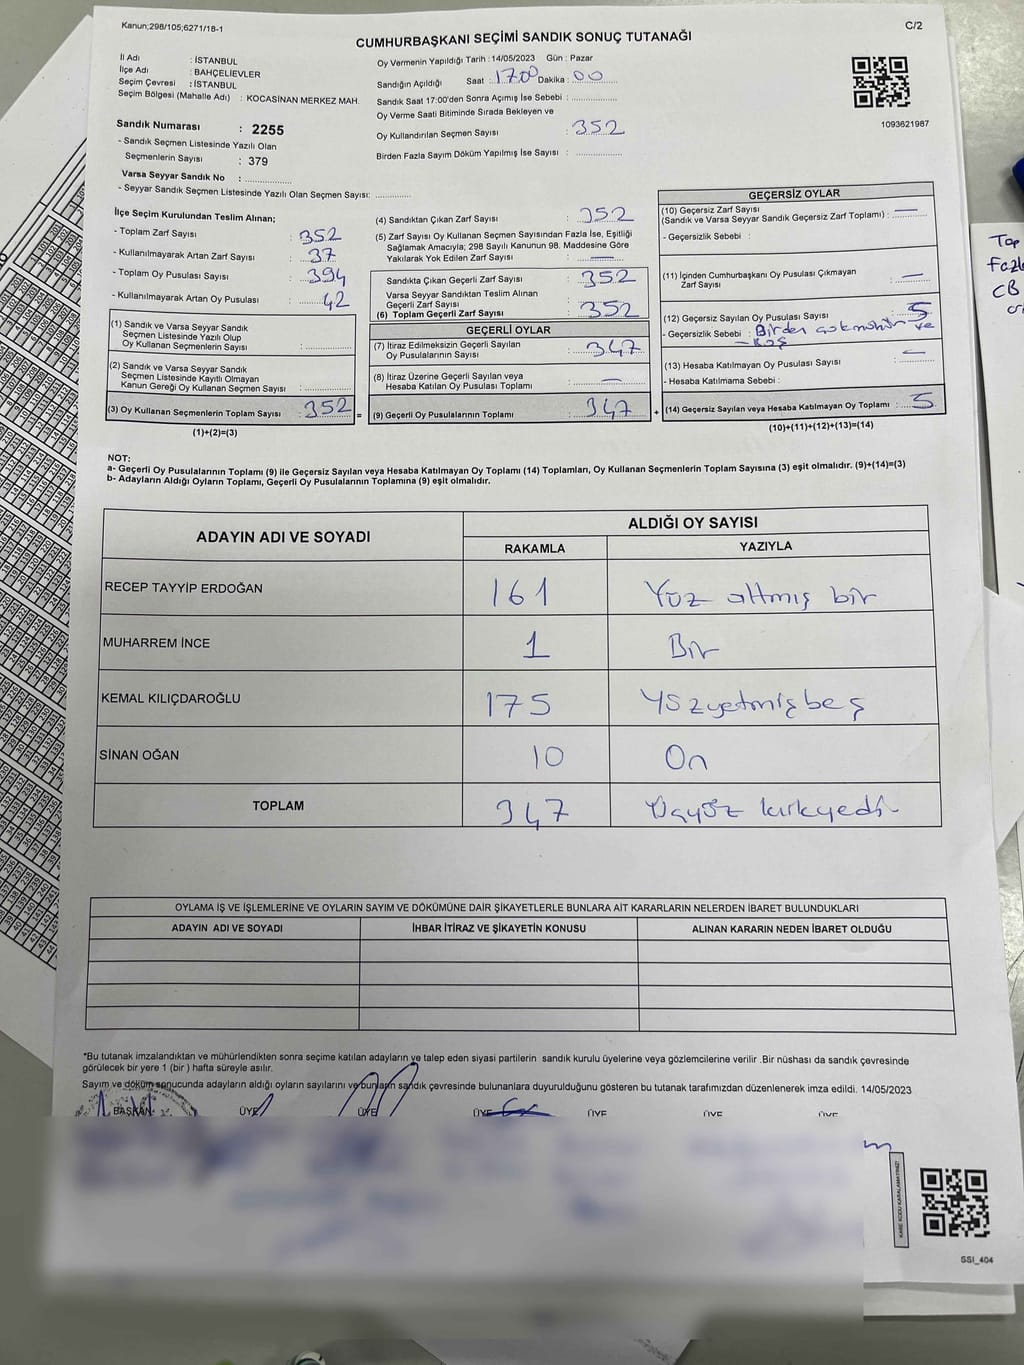 Kanun;298/105;6271/18-1
C/2
CUMHURBAŞKANI SEÇİMİ SANDIK SONUÇ TUTANAĞI
İl Adı : İSTANBUL
İlçe Adı : BAHÇELİEVLER
Seçim Çevresi : İSTANBUL
Seçim Bölgesi (Mahalle Adı) : KOCASİNAN MERKEZ MAH.
Sandık Numarası : 2255
- Sandık Seçmen Listesinde Yazılı Olan
Seçmenlerin Sayısı : 379
Varsa Seyyar Sandık No : ..............
- Seyyar Sandık Seçmen Listesinde Yazılı Olan Seçmen Sayısı: ............
Oy Vermenin Yapıldığı Tarih : 14/05/2023 Gün : Pazar
Sandığın Açıldığı Saat : 17.00 Dakika : 00
Sandık Saat 17:00'den Sonra Açımış İse Sebebi : ..............
Oy Verme Saati Bitiminde Sırada Bekleyen ve
Oy Kullandırılan Seçmen Sayısı : 352
Birden Fazla Sayım Döküm Yapılmış İse Sayısı : ..............
1093621987
İlçe Seçim Kurulundan Teslim Alınan;
- Toplam Zarf Sayısı : 352
- Kullanılmayarak Artan Zarf Sayısı : 37
- Toplam Oy Pusulası Sayısı : 394
- Kullanılmayarak Artan Oy Pusulası : 42
(1) Sandık ve Varsa Seyyar Sandık
Seçmen Listesinde Yazılı Olup
Oy Kullanan Seçmenlerin Sayısı : ..............
(2) Sandık ve Varsa Seyyar Sandık
Seçmen Listesinde Kayıtlı Olmayan
Kanun Gereği Oy Kullanan Seçmen Sayısı : ..............
(3) Oy Kullanan Seçmenlerin Toplam Sayısı : 352 =
(1)+(2)=(3)
(4) Sandıktan Çıkan Zarf Sayısı : 352
(5) Zarf Sayısı Oy Kullanan Seçmen Sayısından Fazla İse, Eşitliği
Sağlamak Amacıyla; 298 Sayılı Kanunun 98. Maddesine Göre
Yakılarak Yok Edilen Zarf Sayısı : —
Sandıkta Çıkan Geçerli Zarf Sayısı : 352
Varsa Seyyar Sandıktan Teslim Alınan
Geçerli Zarf Sayısı :
(6) Toplam Geçerli Zarf Sayısı : 352
GEÇERLİ OYLAR
(7) İtiraz Edilmeksizin Geçerli Sayılan
Oy Pusulalarının Sayısı : 347
(8) İtiraz Üzerine Geçerli Sayılan veya
Hesaba Katılan Oy Pusulası Toplamı : —
(9) Geçerli Oy Pusulalarının Toplamı : 347 +
GEÇERSİZ OYLAR
(10) Geçersiz Zarf Sayısı
(Sandık ve Varsa Seyyar Sandık Geçersiz Zarf Toplamı) : —
- Geçersizlik Sebebi :
(11) İçinden Cumhurbaşkanı Oy Pusulası Çıkmayan
Zarf Sayısı : —
(12) Geçersiz Sayılan Oy Pusulası Sayısı : 5
- Geçersizlik Sebebi : Birden çok mühür ve
- Boş
(13) Hesaba Katılmayan Oy Pusulası Sayısı : —
- Hesaba Katılmama Sebebi :
(14) Geçersiz Sayılan veya Hesaba Katılmayan Oy Toplamı : 5
(10)+(11)+(12)+(13)=(14)
NOT:
a- Geçerli Oy Pusulalarının Toplamı (9) ile Geçersiz Sayılan veya Hesaba Katılmayan Oy Toplamı (14) Toplamları, Oy Kullanan Seçmenlerin Toplam Sayısına (3) eşit olmalıdır. (9)+(14)=(3)
b- Adayların Aldığı Oyların Toplamı, Geçerli Oy Pusulalarının Toplamına (9) eşit olmalıdır.
ADAYIN ADI VE SOYADI ALDIĞI OY SAYISI
RAKAMLA YAZIYLA
RECEP TAYYİP ERDOĞAN 161 Yüz altmış bir
MUHARREM İNCE 1 Bir
KEMAL KILIÇDAROĞLU 175 Yüzyetmişbeş
SİNAN OĞAN 10 On
TOPLAM 347 Üçyüz kırkyedi
OYLAMA İŞ VE İŞLEMLERİNE VE OYLARIN SAYIM VE DÖKÜMÜNE DAİR ŞİKAYETLERLE BUNLARA AİT KARARLARIN NELERDEN İBARET BULUNDUKLARI
ADAYIN ADI VE SOYADI İHBAR İTİRAZ VE ŞİKAYETİN KONUSU ALINAN KARARIN NEDEN İBARET OLDUĞU
*Bu tutanak imzalandıktan ve mühürlendikten sonra seçime katılan adayların ve talep eden siyasi partilerin sandık kurulu üyelerine veya gözlemcilerine verilir .Bir nüshası da sandık çevresinde
görülecek bir yere 1 (bir ) hafta süreyle asılır.
Sayım ve döküm sonucunda adayların aldığı oyların sayılarını ve bunların sandık çevresinde bulunanlara duyurulduğunu gösteren bu tutanak tarafımızdan düzenlenerek imza edildi. 14/05/2023
BAŞKAN ÜYE ÜYE ÜYE ÜYE ÜYE ÜYE
KARE KODU KARALAMAYINIZ!
SSI_404